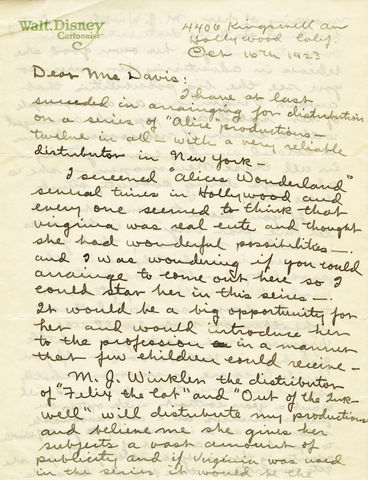 Walt. Disney
Cartoonist
4406 Kingswell Av
Hollywood Calif.
Oct 16th 1923
Dear Mrs Davis:
I have at last
succeeded in arrainging for distribution
on a series of "Alice" productions—
twelve in all—with a very reliable
distributor in New York—
I screened "Alices Wonderland"
several times in Hollywood and
every one seemed to think that
Virginia was real cute and thought
she had wonderful possibilities—.
and I was wondering if you would
arrainge to come out here so I
could star her in this series—.
It would be a big opportunity for
her and would introduce her
to the profession in a manner
that few children could receive—
M. J. Winkler the distributor
of "Felix the Cat" and "Out of the Ink-
well" will distribute my productions
and believe me she gives her
subjects a vast amount of
publicity and if Virginia was used
in the series it would be the